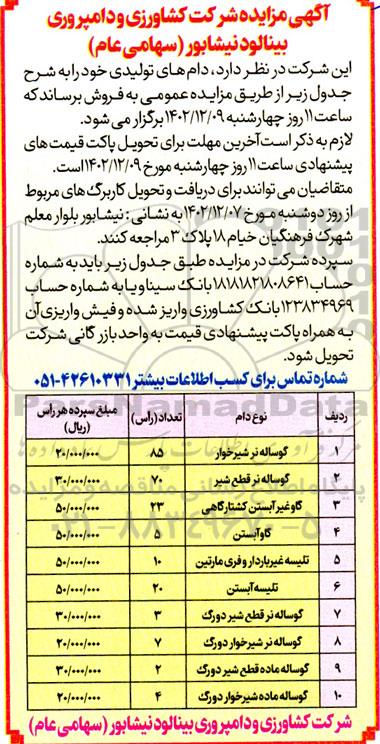 آگهی مزایده شرکت کشاورزی و دامپروری
بینالود نیشابور (سهامی عام)
این شرکت در نظر دارد، دام های تولیدی خود را به شرح
جدول زیر از طریق مزایده عمومی به فروش برساند که
ساعت ۱۱ روز چهارشنبه ۱۴۰۲/۱۲/۰۹ برگزار می شود.
لازم به ذکر است آخرین مهلت برای تحویل پاکت قیمت های
پیشنهادی ساعت ۱۱ روز چهارشنبه مورخ ۱۴۰۲/۱۲/۰۹ است.
متقاضیان می توانند برای دریافت و تحویل کاربرگ های مربوط
از روز دوشنبه مورخ ۱۴۰۲/۱۲/۰۷ به نشانی: نیشابور بلوار معلم
شهرک فرهنگیان خیام ۱۸ پلاک ۳ مراجعه کنند.
سپرده شرکت در مزایده طبق جدول زیر باید به شماره
حساب ۱۸۱۸۱۸۲۱۸۰۸۶۴۱ بانک سینا و یا به شماره حساب
۱۲۳۸۳۴۹۶۹ بانک کشاورزی واریز شده و فیش واریزی آن
به همراه پاکت پیشنهادی قیمت به واحد بازرگانی شرکت
تحویل شود.
شماره تماس برای کسب اطلاعات بیشتر ۴۲۶۱۰۳۳۱-۰۵۱
ردیف نوع دام تعداد (راس) مبلغ سپرده هر راس (ریال)
۱ گوساله نر شیرخوار ۸۵ ۲۰/۰۰۰/۰۰۰
۲ گوساله نر قطع شیر ۷۰ ۳۰/۰۰۰/۰۰۰
۳ گاو غیر آبستن کشتارگاهی ۲۳ ۵۰/۰۰۰/۰۰۰
۴ گاو آبستن ۵ ۵۰/۰۰۰/۰۰۰
۵ تلیسه غیر باردار و فری مارتین ۱۰ ۵۰/۰۰۰/۰۰۰
۶ تلیسه آبستن ۲۰ ۵۰/۰۰۰/۰۰۰
۷ گوساله نر قطع شیر دورگ ۳ ۳۰/۰۰۰/۰۰۰
۸ گوساله نر شیرخوار دورگ ۷ ۲۰/۰۰۰/۰۰۰
۹ گوساله ماده قطع شیر دورگ ۲ ۳۰/۰۰۰/۰۰۰
۱۰ گوساله ماده شیرخوار دورگ ۴ ۲۰/۰۰۰/۰۰۰
شرکت کشاورزی و دامپروری بینالود نیشابور (سهامی عام)